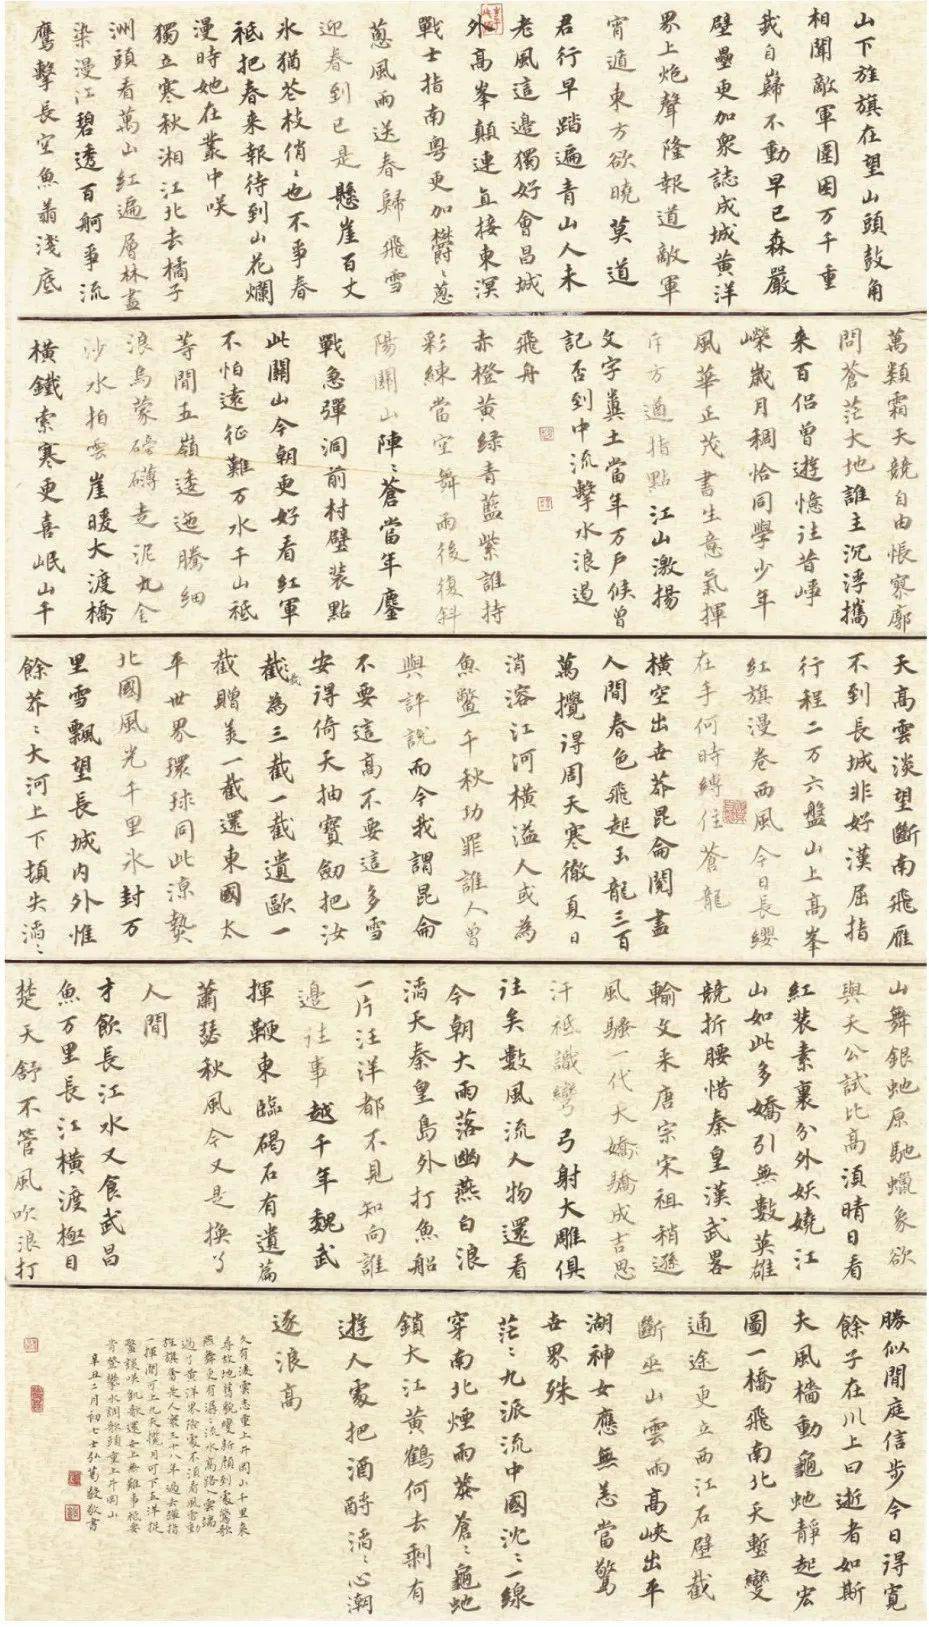 山下旌旗在望山頭鼓角
相聞敵軍圍困万千重
我自巋不動早已森嚴
壁壘更加衆誌成城黄洋
界上炮聲隆報道敵軍
宵遁東方欲曉莫道
君行早踏遍青山人未
老風這邊獨好會昌城
外高峯顛連直接東溟
戰士指南粤更加欝〻蔥
蔥風雨送春歸飛雪
迎春到已是懸崖百丈
氷猶花枝俏〻也不事春
祇把春来報待到山花爛
漫時她在叢中咲
獨立寒秋湘江北去橘子
洲頭看萬山紅遍層林盡
染漫江碧透百舸事流
鹰擊長空魚翔淺底
萬類霜天競自由悵寥廓
問蒼茫大地誰主沉浮攜
来百侶曾遊憶往昔崢
嶸歲月稠恰同學少年
風華正茂書生意氣揮
斥方遒指點江山激揚
文字糞土當年万戶候曾
記否到中流擊水浪遏
飛舟
赤橙黄绿青藍紫誰持
彩練當空舞雨後復斜
陽關山陣〻蒼當年鏖
戰急彈洞前村壁装點
此關山今朝更好看红軍
不怕遠征難万水千山祇
等閒五嶺逶迤騰細
浪烏蒙磅礴走泥丸金
沙水拍雲崖暖大渡橋
横鐵索寒更喜岷山千
里雪飄望長城内外惟
餘莽〻大河上下頓失滔〻
天高雲淡望斷南飛雁
不到長城非好漢屈指
行程二万六盤山上高峯
红旗漫卷西風今日長纓
在手何時縛住蒼龍
横空出世莽昆侖閲盡
人間春色飛起玉龍三百
萬攪得周天寒徹夏日
消溶江河横溢人或為
魚鱉千秋功罪誰人曾
與評説而今我謂昆侖
不要這高不要這多雪
安得倚天抽寶劍把汝
截為三截一截遺歐一
截贈美一截還東國太
平世界環球同此涼熱
北國風光千里氷封万
山舞銀蛇原馳蠟象欲
與天公試比高須晴日看
紅装素裹分外妖嬈江
山如此多嬌引無數英雄
競折腰惜秦皇漢武畧
輸文采唐宗宋祖稍遜
風騷一代天嬌驕成吉思
汗祗識彎弓射大雕俱
往矣數風流人物還看
今朝大雨落幽燕白浪
滔天秦皇島外打魚船
一片汪洋都不見知向誰
邊往事越千年魏武
揮鞭東臨碣石有遺篇
蕭瑟秋風今又是換了
人間
才飲長江水又食武昌
魚万里長江横渡極目
楚天舒不管風吹浪打
勝似閒庭信步今日得寬
餘子在川上曰逝者如斯
夫風檣動龜虵靜起宏
圖一橋飛南北天塹變
通途更立西江石壁截
斷巫山雲雨高峽出平
湖神女應無恙當驚
世界殊
茫〻九派流中國沈〻一線
穿南北煙雨莽蒼〻龜虵
鎖大江黄鶴何去剩有
遊人處把酒酹滔〻心潮
逐浪高
久有凌雲志重上井岡山千里來
尋故地舊貌變新顏到處鶯歌
燕舞更有潺〻流水高路入雲端
過了黄洋界險處不須看風雷動
旌旗奮是人寰三十八年過去彈指
一揮間可上九天攬月可下五洋捉
鱉談咲凱歌還世上無難事祇要
肯登攀水調歌頭重上井岡山
辛丑二月初七